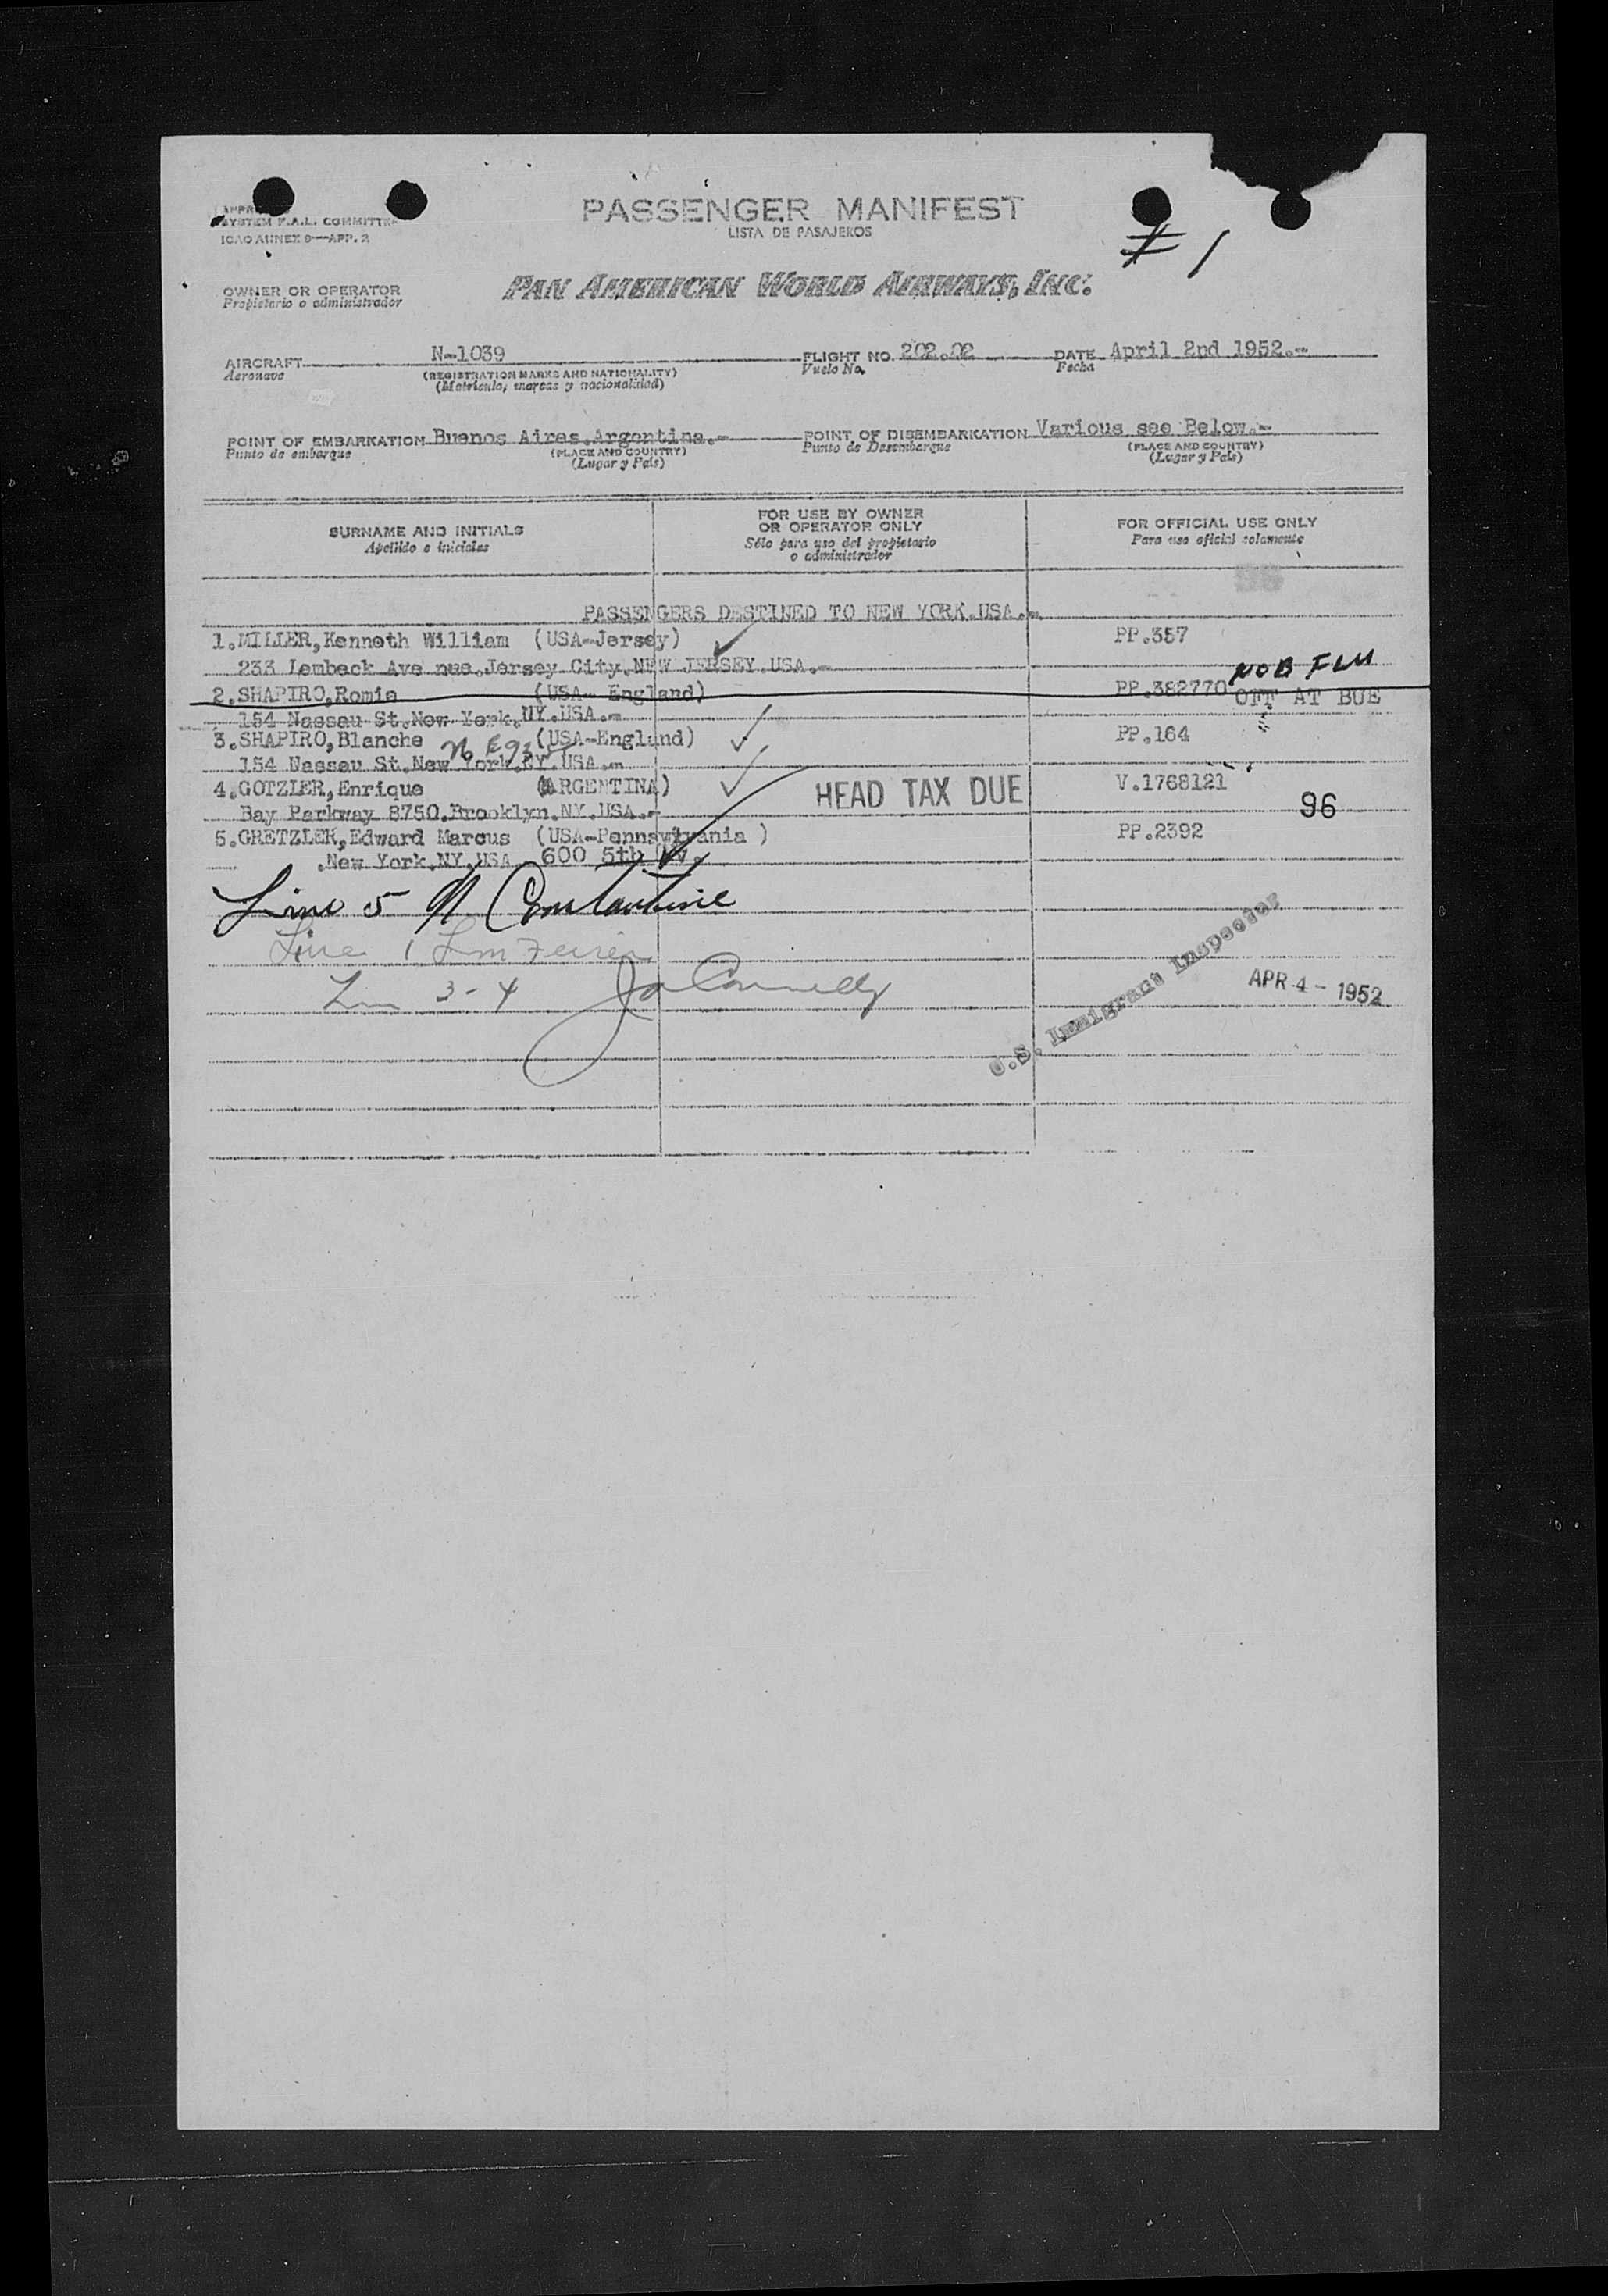 PASSENGER MANIFEST
LISTA DE PASAJEROS
SYSTEM F.A.L. COMMITTEE
ICAO ANNEX 9—APP. 2
# 1
PAN AMERICAN WORLD AIRWAYS, INC.
OWNER OR OPERATOR
Propietario o administrador
AIRCRAFT N-1039 FLIGHT NO. 202.02 DATE April 2nd 1952.-
Aeronave (REGISTRATION MARKS AND NATIONALITY) Vuelo No. Fecha
(Matrícula, marcas y nacionalidad)
POINT OF EMBARKATION Buenos Aires.Argentina.- POINT OF DISEMBARKATION Various see Below.-
Punto de embarque (PLACE AND COUNTRY) Punto de Desembarque (PLACE AND COUNTRY)
(Lugar y País) (Lugar y País)
SURNAME AND INITIALS FOR USE BY OWNER OR OPERATOR ONLY FOR OFFICIAL USE ONLY
Apellido e iniciales Sólo para uso del propietario o administrador Para uso oficial solamente
PASSENGERS DESTINED TO NEW YORK.USA.-
1.MILLER,Kenneth William (USA-Jersey) PP.357
233 Lembeck Ave nue.Jersey City.NEW JERSEY.USA.-
NOB FLM
2.SHAPIRO,Romie (USA- England) PP.382770 OFF AT BUE
154 Nassau St.New York.NY.USA.-
3.SHAPIRO,Blanche (USA-England) PP.164
154 Nassau St.New York.NY.USA.-
4.GOTZLER,Enrique (ARGENTINA) HEAD TAX DUE V.1768121
Bay Parkway 8750.Brooklyn.NY.USA.- 96
5.GRETZLER,Edward Marcus (USA-Pennsylvania ) PP.2392
.New York.NY.USA. 600 5th Av.
Line 5 N Constantine
Line 1
3-4 Connelly
U.S. Immigrant Inspector
APR 4 - 1952